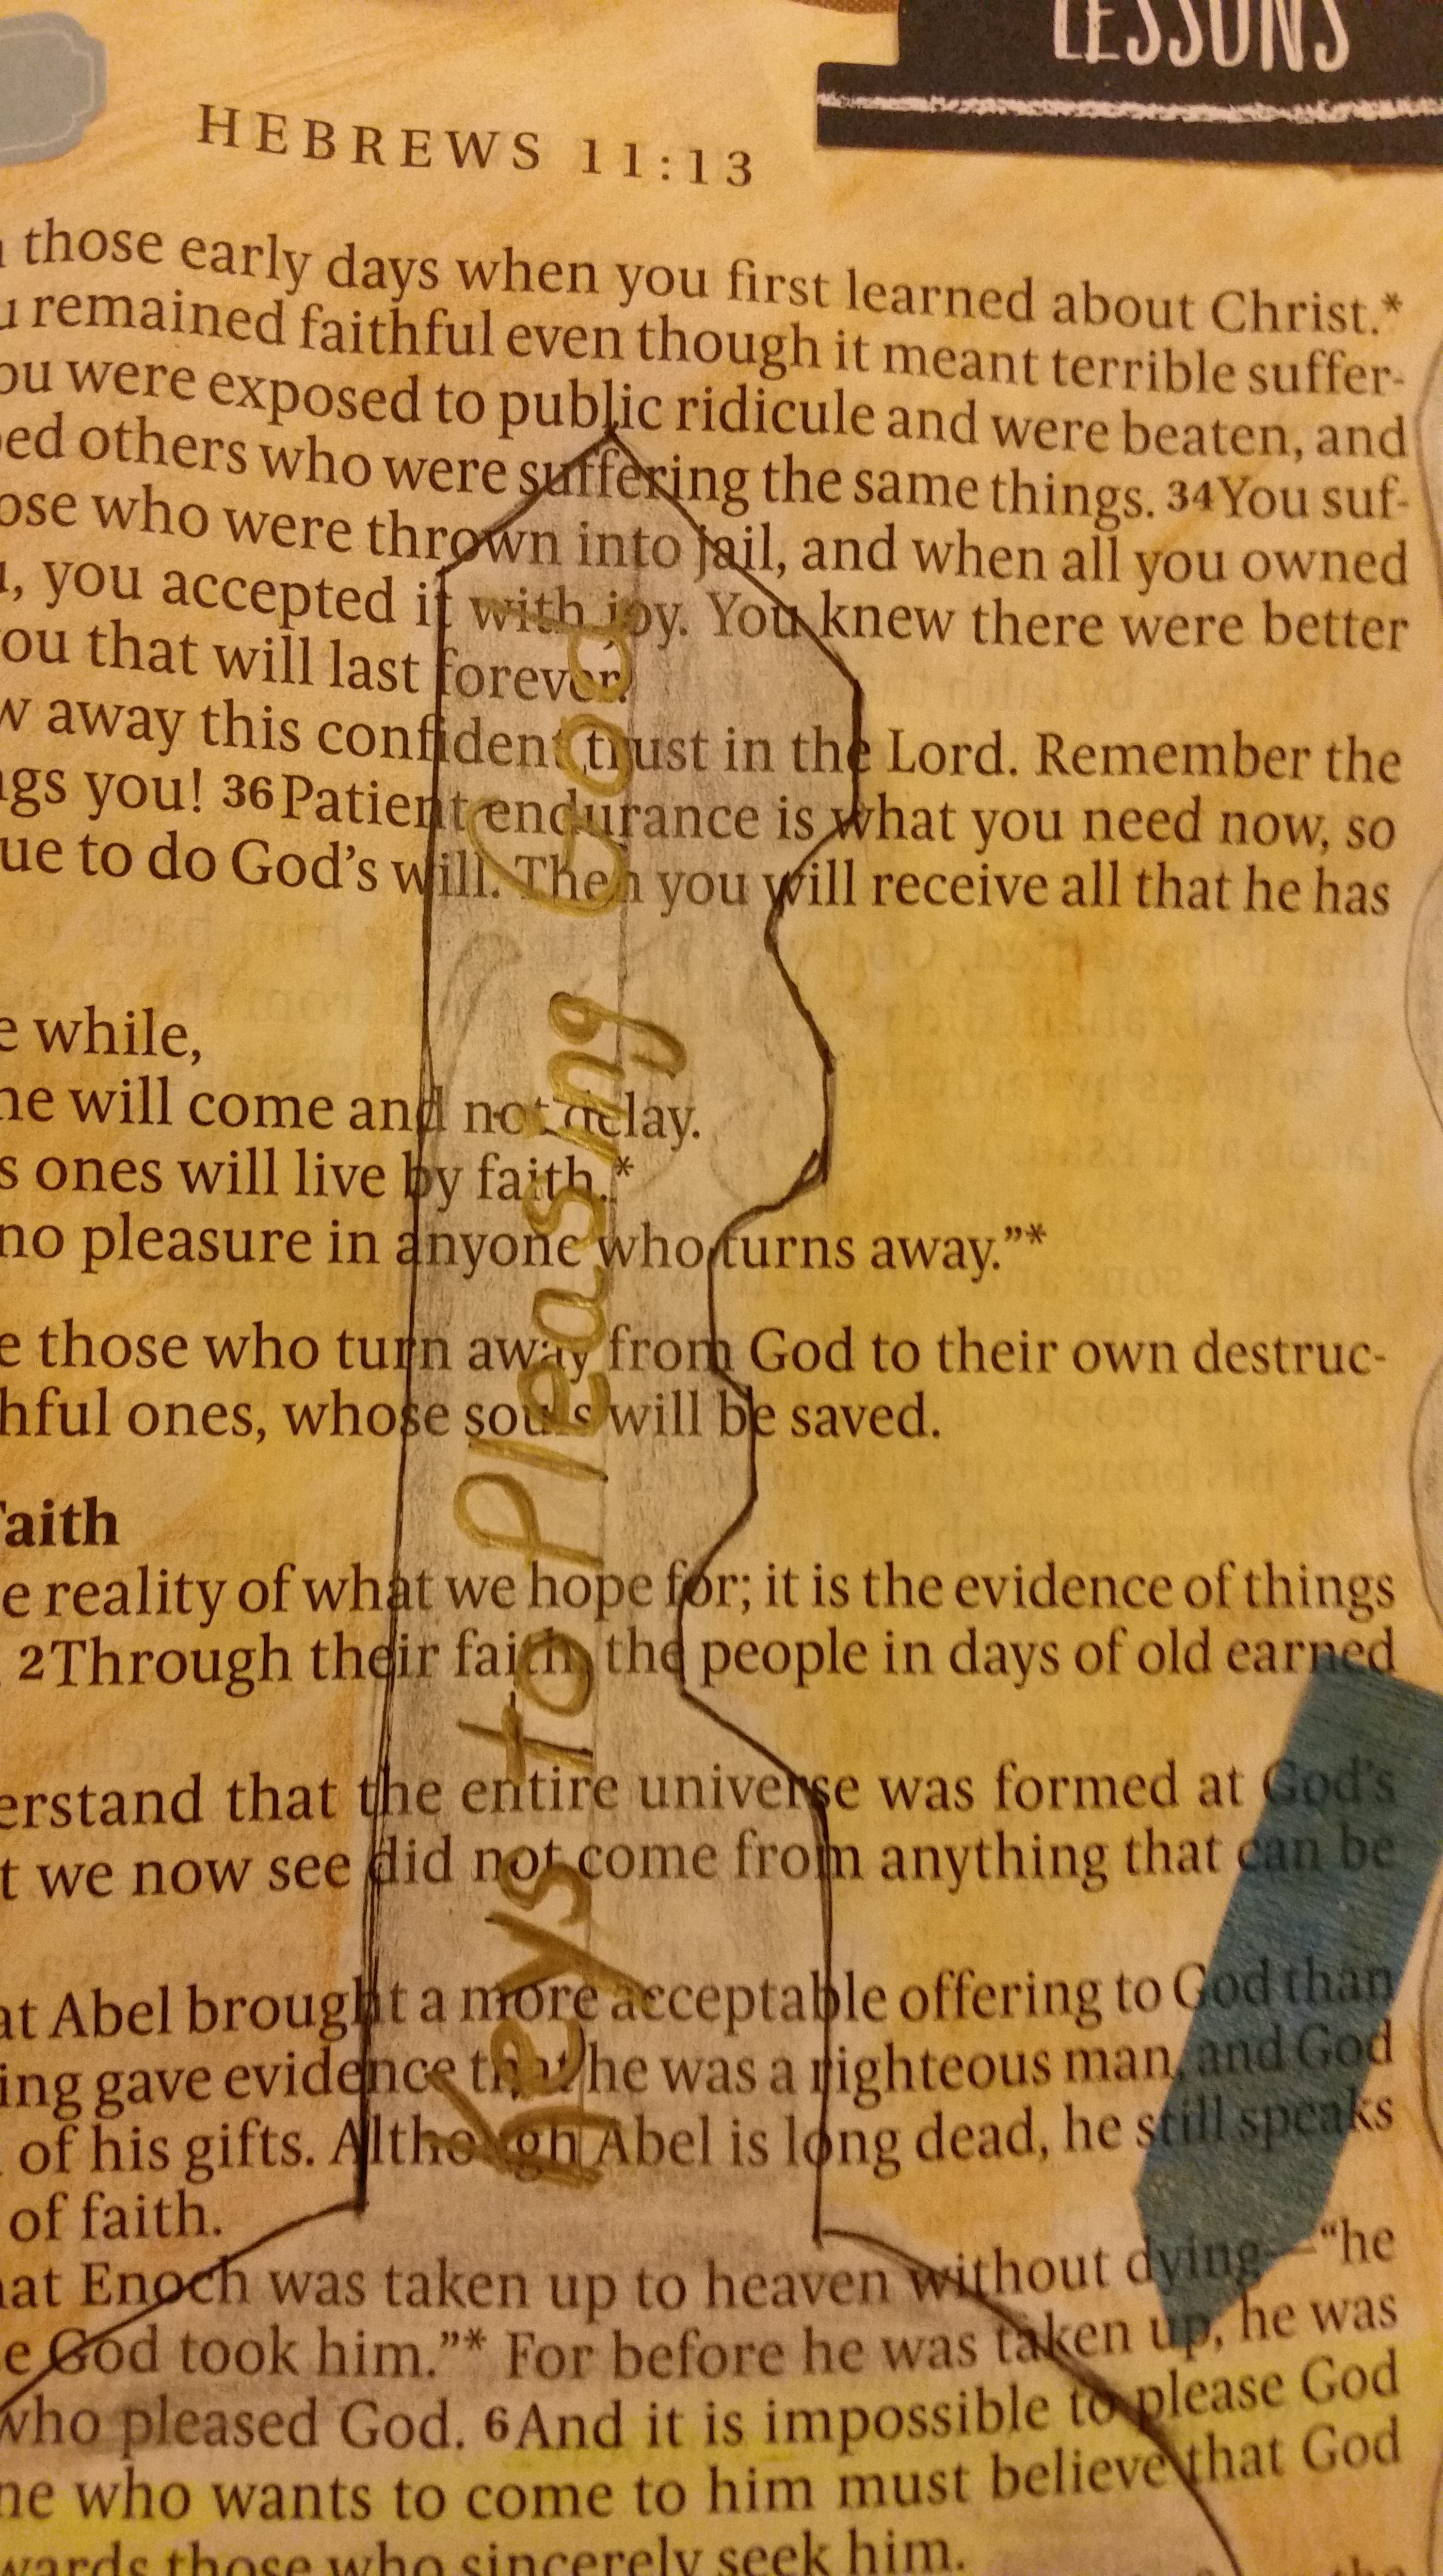 LESSONS
HEBREWS 11:13
those early days when you first learned about Christ.*
remained faithful even though it meant terrible suffer-
ou were exposed to public ridicule and were beaten, and
ped others who were suffering the same things. 34You suf-
ose who were thrown into jail, and when all you owned
, you accepted it with joy. You knew there were better
ou that will last forever.
w away this confident trust in the Lord. Remember the
ngs you! 36Patient endurance is what you need now, so
ue to do God's will. Then you will receive all that he has
e while,
ne will come and not delay.
s ones will live by faith.*
no pleasure in anyone who turns away."*
e those who turn away from God to their own destruc-
hful ones, whose souls will be saved.
Faith
e reality of what we hope for; it is the evidence of things
2Through their faith, the people in days of old earned
erstand that the entire universe was formed at God's
t we now see did not come from anything that can be
at Abel brought a more acceptable offering to God than
ing gave evidence that he was a righteous man, and God
of his gifts. Although Abel is long dead, he still speaks
of faith.
hat Enoch was taken up to heaven without dying—"he
e God took him."* For before he was taken up, he was
who pleased God. 6And it is impossible to please God
ne who wants to come to him must believe that God
wards those who sincerely seek him.
Keys to Pleasing God